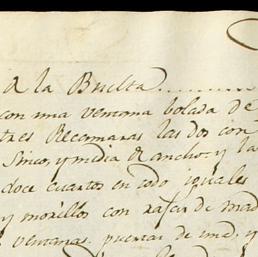 a la Buelta..........
con una ventana bolada de
tres Recamaras las dos con
Sinco, y media de ancho, y la
doce cuartos en todo iguales
y morillos con rafas de mad
ventanas puertas de md. y